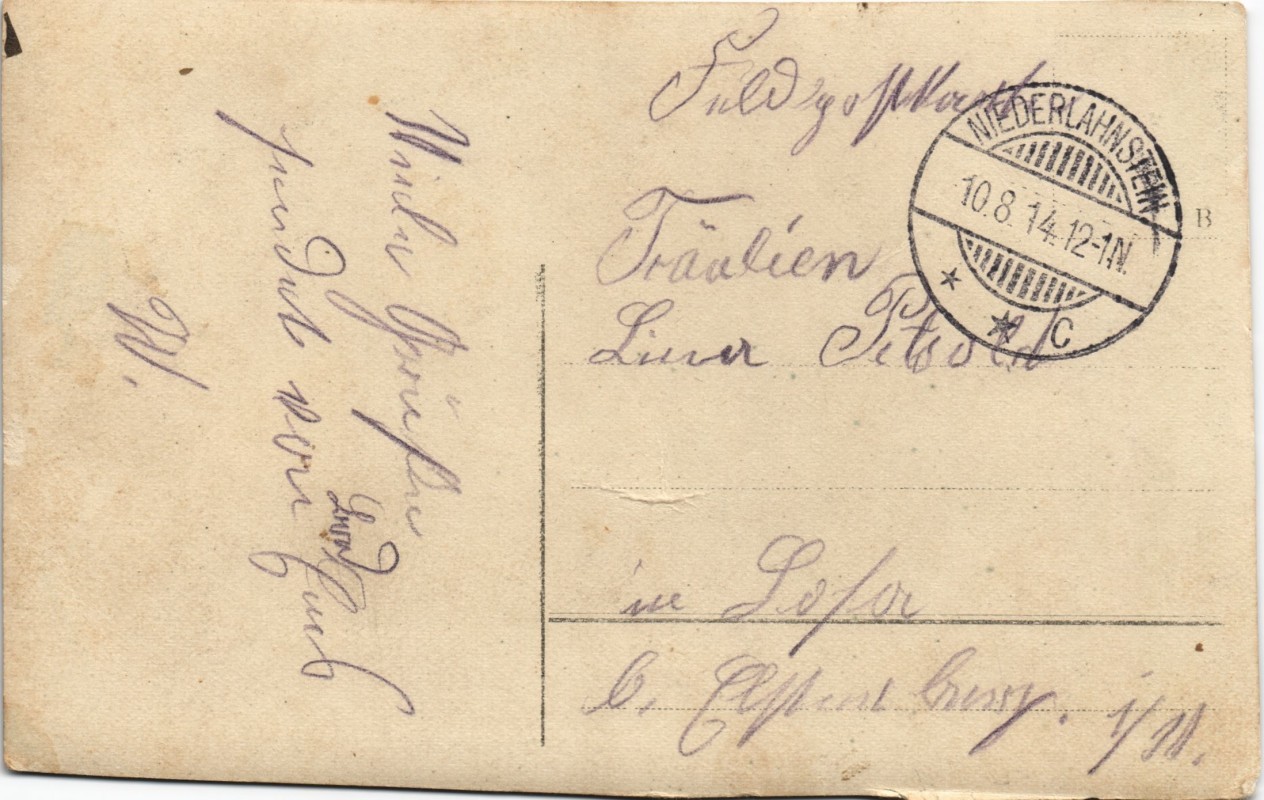 Feldpostkarte
NIEDERLAHNSTEIN
10.8.14.12-1N.
* * C
B
Fräulien
Lina Petsold
in Loha
b.
i/W.
Viele Grüße
sendet von
W.